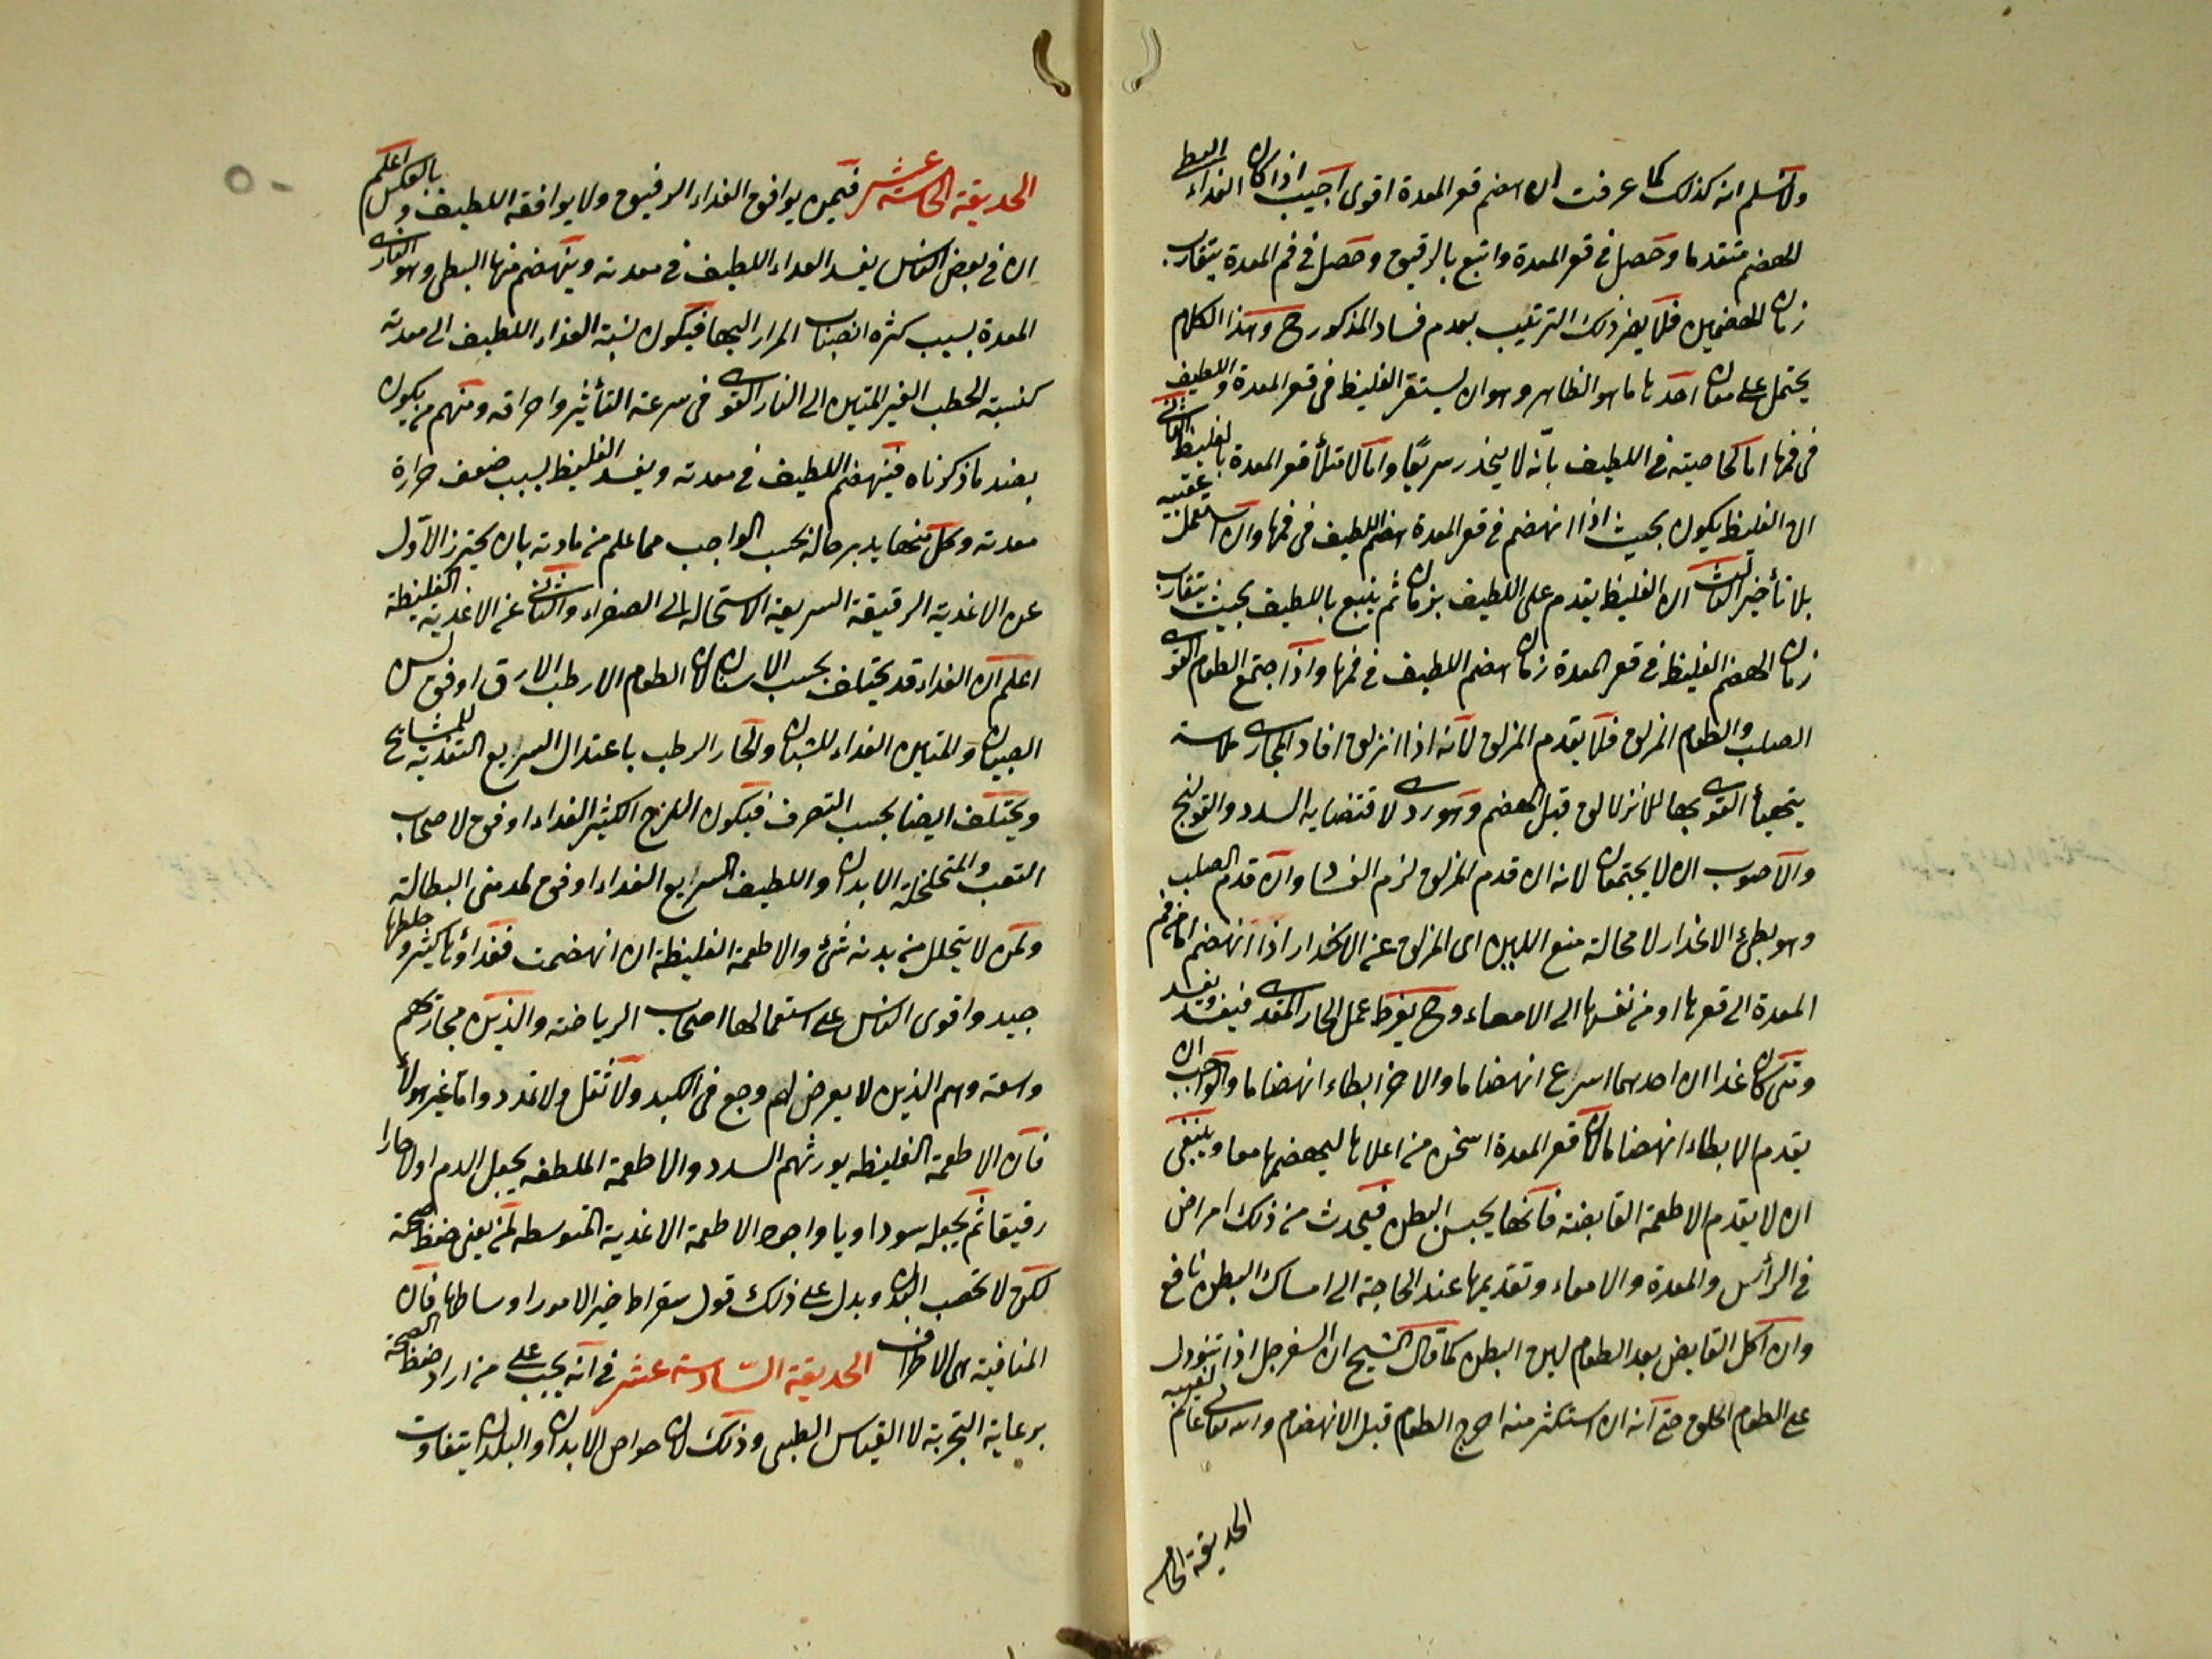 ولا نسلم انه كذلك كما عرفت ان هضم قعر المعدة اقوى اجيب اذا كان الغذاء البطى
الهضم متقدما وحصل فى قعر المعدة واتبع بالرقيق وحصل فى فم المعدة يتقارب
زمان الهضمين فلا يضر ذلك الترتيب بعدم فساد المذكور ح وهذا الكلام
يحتمل على معان احدها ما هو الظاهر وهو ان يستقر الغليظ فى قعر المعدة واللطيف
فى فمها اما لخاصيته فى اللطيف بانه لا ينحدر سريعا واما لامتلأ قعر المعدة بالغليظ الثانى
ان الغليظ يكون بحيث اذا انهضم فى قعر المعدة هضم اللطيف فى فمها وان استعمل عقيبه
بلا تأخير الثالث ان الغليظ يقدم على اللطيف بزمان ثم يتبع باللطيف بحيث يتقارب
زمان الهضم الغليظ فى قعر المعدة زمان هضم اللطيف فى فمها واذا اجتمع الطعام القوى
الصلب والطعام المزلق فلا يقدم المزلق لانه اذا انزلق افاد المجارى ملاسة
يتهيأ القوى بها للانزلاق قبل الهضم وهو ردى لاقتضايه السدد والقولنج
والاصوب ان لا يجتمعان لانه ان قدم المزلق لزم الفساد وان قدم الصلب
وهو بطئ الانحدار لا محالة منع اللين اى المزلق عن الانحدار اذا انهضم اما من فم
المعدة الى قعرها او من نفسها الى الامعاء وح يفرط عمل الحار المعدى فيفسد ويفسد
ومتى كان غذاان احدهما اسرع انهضاما والاخر ابطاء انهضاما والواجب ان
يقدم الابطاء انهضاما لان قعر المعدة اسخن من اعلاها ليهضمها معا وينبغى
ان لا يقدم الاطعمة القابضة فانها يحبس البطن فيحدث من ذلك امراض
فى الرأس والمعدة والامعاء وتقديمها عند الحاجة الى امساك البطن نافع
وان اكل القابض بعد الطعام لين البطن كما قال الشيخ ان السفرجل اذا تنوول
على الطعام اطلق حتى انه ان استكثر منه اخرج الطعام قبل الانهضام والله تعالى عالم لغيبه
الحديقة الخامسة
الحديقة الخامسة عشر فيمن يوافق الغذاء الرقيق ولا يوافقه اللطيف وبالعكس اعلم
ان فى بعض الناس يفسد الغداء اللطيف فى معدته وينهضم فيها البطى وهو النارى
المعدة بسبب كثره انصباب المرار اليها فيكون نسبة الغذاء اللطيف الى معدته
كنسبة الحطب الغير المتين الى النار القوى فى سرعة التأثير واحراقه ومنهم من يكون
بضد ما ذكرناه فينهضم اللطيف فى معدته ويفسد الغليظ بسبب ضعف حرارة
معدته وكل منهما يدبر حاله بحسب الواجب مما علم من مادته بان يحترز الاول
عن الاغذية الرقيقة السريعة الاستحالة الى الصفراء والثانى عن الاغذية الغليظة
اعلم ان الغداء قد يختلف بحسب الاسنان لان الطعام الارطب الارق اوفق لسن
الصبيان والمتين الغداء للشبان والحار الرطب باعتدال السريع التغذية للمشايخ
ويختلف ايضا بحسب التصرف فيكون اللزج الكثير الغداء اوفق لاصحاب
التعب والمتخلخلة الابدان واللطيف السريع الغداء اوفق لمدمنى البطالة
ولمن لا يتحلل من بدنه شئ والاطعمة الغليظة ان انهضمت فغداؤها كثير وخلطها
جيد واقوى الناس على استعمالها اصحاب الرياضة والذين مجاريهم
واسعة وهم الذين لا يعرض لهم وجع فى الكبد ولا ثقل ولا تمدد واما غير هولاء
فان الاطعمة الغليظه يورثهم السدد والاطعمة الملطفه يجعل الدم اولا حارا
رقيقا ثم يجعله سوداويا واجود الاطعمة الاغدية المتوسطه لمن يعنى حفظ صحة
لكن لا تخصب البدن ويدل على ذلك قول سقراط خير الامور اوساطها فان
المنافية هى الاطراف الحديقة السادسة عشر فى انه يجب على من اراد حفظ الصحة
برعاية التجربة لا القياس الطبى وذلك لان خواص الابدان والبلدان يتفاوت